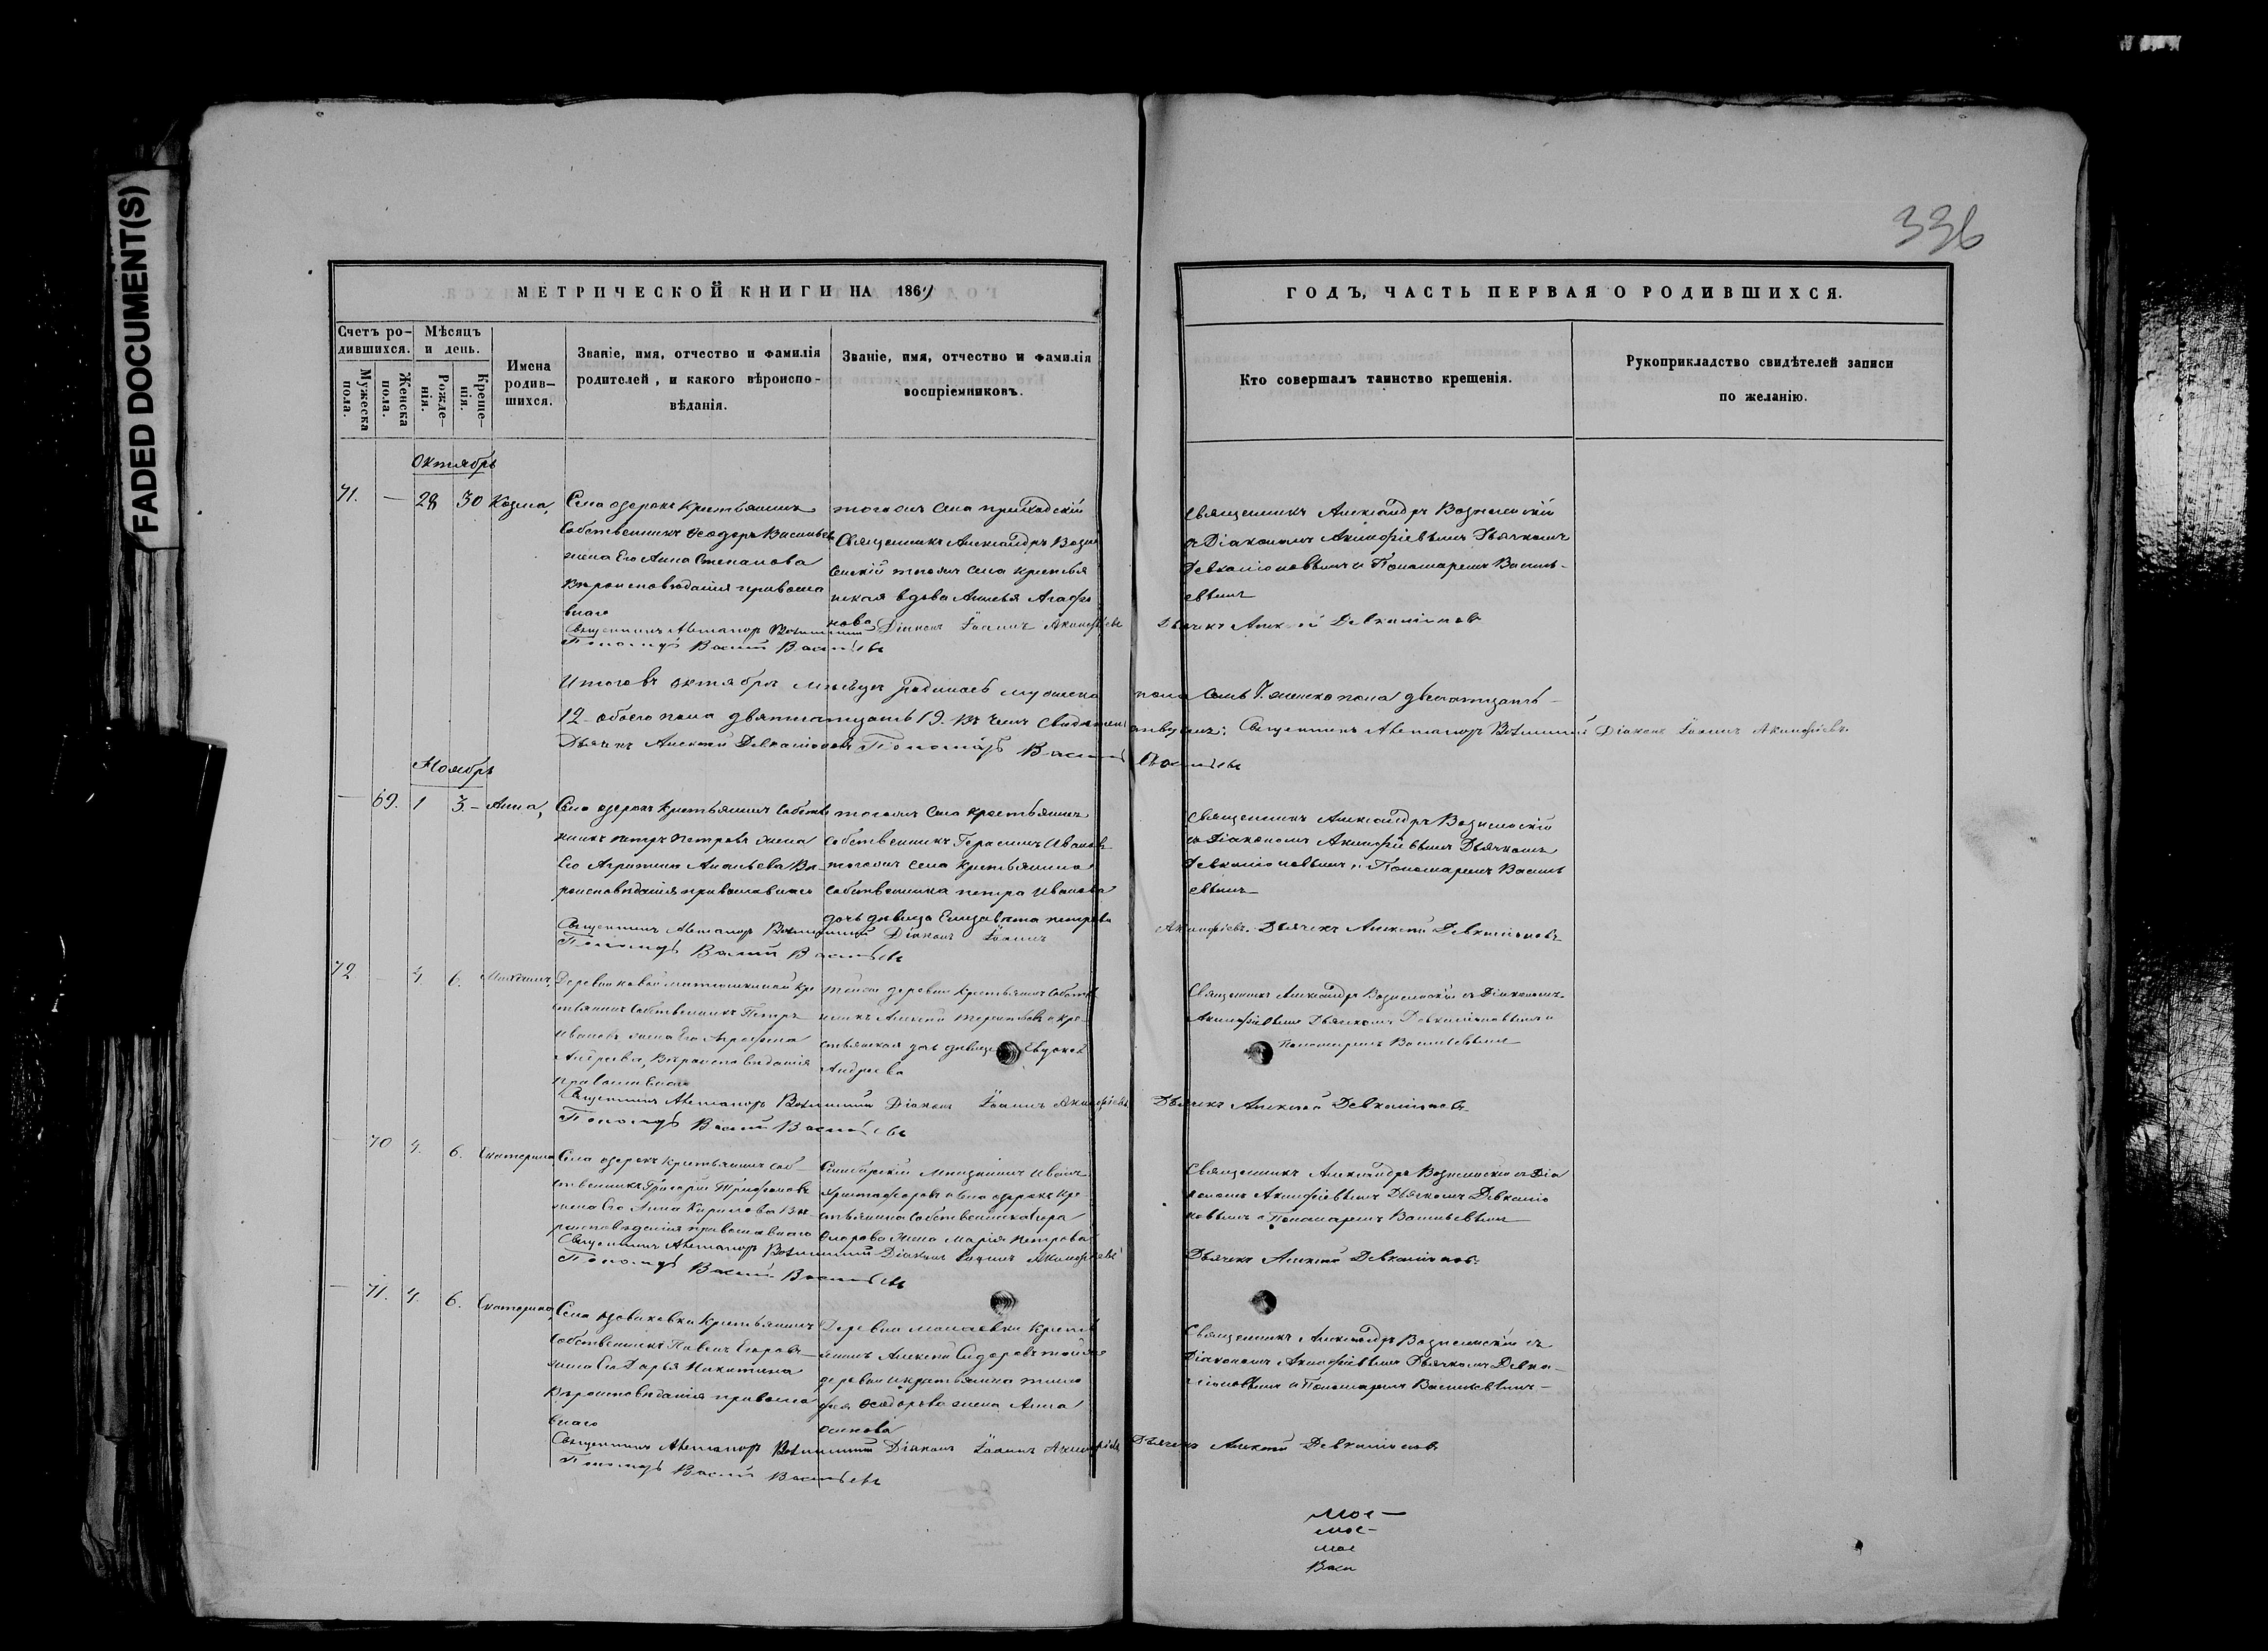 FADED DOCUMENT(S)
336
МЕТРИЧЕСКОЙ КНИГИ НА 1864
ГОДЪ, ЧАСТЬ ПЕРВАЯ О РОДИВШИХСЯ.
Счетъ ро-
дившихся.
Мужеска
пола.
Женска
пола.
Мѣсяцъ
и день.
Рожде-
нія.
Креще-
нія.
Имена
родив-
шихся.
Званіе, имя, отчество и фамилія
родителей, и какого вѣроиспо-
вѣданія.
Званіе, имя, отчество и фамилія
воспріемниковъ.
Кто совершалъ таинство крещенія.
Рукоприкладство свидѣтелей записи
по желанію.
Октябрь
71. — 28 30 Козма,
Села озерокъ крестьянинъ
собственникъ Ѳеодоръ Васильевъ
жена Его Анна Степанова
Вѣроисповѣданія правосла
внаго
тогожъ села приходскій
Священникъ Александръ Возне
сенскій тогожъ села крестья
нская вдова Агафо
нова
Священникъ Александръ Вознесенскій
съ Діакономъ Акинфіевымъ Дьячкомъ
Девкаліоновымъ и Пономаремъ Василь-
евымъ
Священникъ Александръ Вознесенскій Діаконъ Іоаннъ Акинфіевъ Дьячекъ Алексѣй Девкаліоновъ
Пономарь Василій Васильевъ
Итого въ октябрѣ мѣсяцѣ родилось мужеска пола семь 7. женска пола двенатцать
12 – обоего пола девятнатцать 19. въ чемъ свидѣтельствуемъ: Священникъ Александръ Вознесенскій Діаконъ Іоаннъ Акинфіевъ.
Дьячекъ Алексѣй Девкаліоновъ Пономарь Василій Васильевъ
Ноябрь
— 69. 1 3 – Анна,
Села озерокъ крестьянинъ собстве
нникъ петръ петровъ жена
Его Ананьева Вѣ-
роисповѣданія православнаго
тогожъ села крестьянинъ
собственникъ Герасимъ Ивановъ
тогожъ села крестьянина
собственника петра Иванова
дочь дѣвица Елизавета петрова
Священникъ Александръ Вознесенскій
съ Діакономъ Акинфіевымъ Дьячкомъ
Девкаліоновымъ и Пономаремъ Василь
евымъ
Священникъ Александръ Вознесенскій Діаконъ Іоаннъ Акинфіевъ. Дьячекъ Алексѣй Девкаліоновъ
Пономарь Василій Васильевъ
72 4. 6.
Деревни новой кре
стьянинъ собственникъ Петръ
Ивановъ жена Его
Андреева, Вѣроисповѣданія
православнаго
тойже деревни крестьянинъ собстве
нникъ Алексѣй кре
стьянская дочь дѣвица Евдокія
Андреева
Священникъ Александръ Вознесенскій съ Діакономъ
Акинфіевымъ Дьячкомъ Девкаліоновымъ и
Пономаремъ Васильевымъ
Священникъ Александръ Вознесенскій Діаконъ Іоаннъ Акинфіевъ Дьячекъ Алексѣй Девкаліоновъ
Пономарь Василій Васильевъ
— 70 4. 6. Екатерина
Села озерокъ крестьянинъ соб-
ственникъ Григорій Трифоновъ
жена Его Анна Кирилова Вѣ
роисповеданія православнаго
Симбирскій Мещанинъ Иванъ
Христофоровъ села озерокъ кре
стьянина собственника
жена Марія петрова
Священникъ Александръ Вознесенскій съ Діа
кономъ Акинфіевымъ Дьячкомъ Девкаліо
новымъ и Пономаремъ Васильевымъ
Священникъ Александръ Вознесенскій Діаконъ Іоаннъ Акинфіевъ Дьячекъ Алексѣй Девкаліоновъ
Пономарь Василій Васильевъ
— 71. 4. 6. Екатерина,
Села крестьянинъ
собственникъ Павелъ Егоровъ
жена Его Дарья Никитина
Вѣроисповѣданія правосла
внаго
Деревни крестья
нинъ Алексѣй Сидоровъ тойже
деревни крестьянина
Ѳеодорова жена Анна
Осипова
Священникъ Александръ Вознесенскій съ
Діакономъ Акинфіевымъ Дьячкомъ Девка-
ліоновымъ и Пономаремъ Васильевымъ –
Священникъ Александръ Вознесенскій Діаконъ Іоаннъ Акинфіевъ Дьячекъ Алексѣй Девкаліоновъ
Пономарь Василій Васильевъ
мое –
мое –
мое
Васи